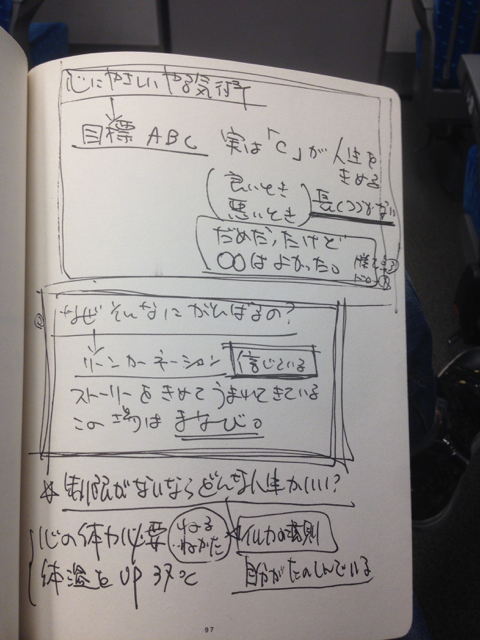 心にやさしいやる気術
目標 ABC 実は「C」が人生を
きめる
良いとき
悪いとき 長くつづかない
だめだったけど
〇〇はよかった。
② なぜそんなにがんばるの?
リーンカーネーション 信じている
ストーリーをきめてうまれてきている
この場は まなび。
☆ 制限がないならどんな人生がいい?
心の体力必要 ねる ねかた の法則
体温をUP 37℃ 自分がたのしんでいる
97